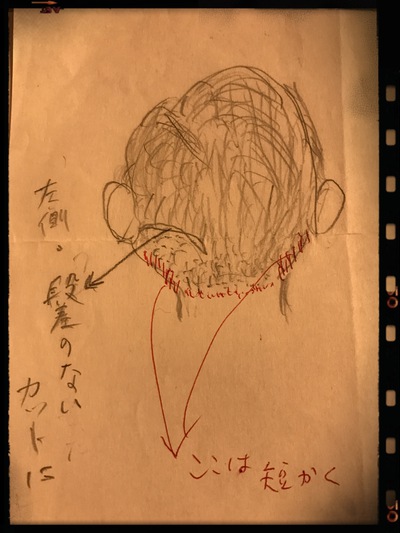 左側。
段差のない
カットに
ここは短かく